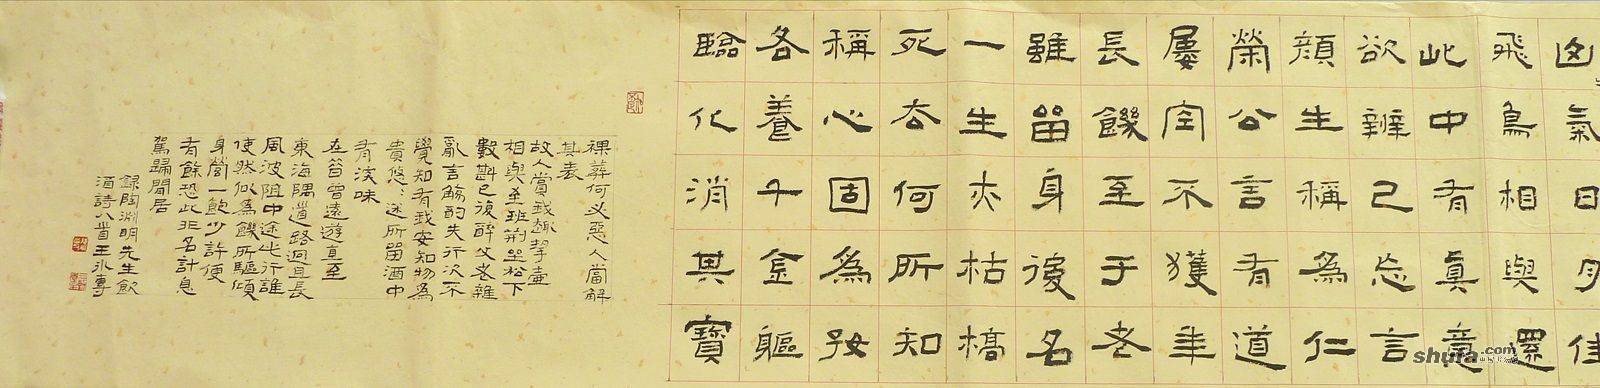 山氣日夕佳
飛鳥相與還
此中有眞意
欲辨已忘言
顏生稱為仁
榮公言有道
屢空不獲年
長饑至于老
雖留身後名
一生亦枯槁
死去何所知
稱心固為好
各養千金軀
臨化消其寶
裸葬何必惡人當解
其表
故人賞我趣挈壺
相與至班荊坐松下
數斟已復醉父老雜
亂言觴酌失行次不
覺知有我安知物為
貴悠〻迷所留酒中
有深味
在昔曾遠遊直至
東海隅道路迥且長
風波阻中途此行誰
使然似為饑所驅傾
身營一飽少許便
有餘恐此非名計息
駕歸閒居
錄陶淵明先生飲
酒詩八首王永
shufa.com